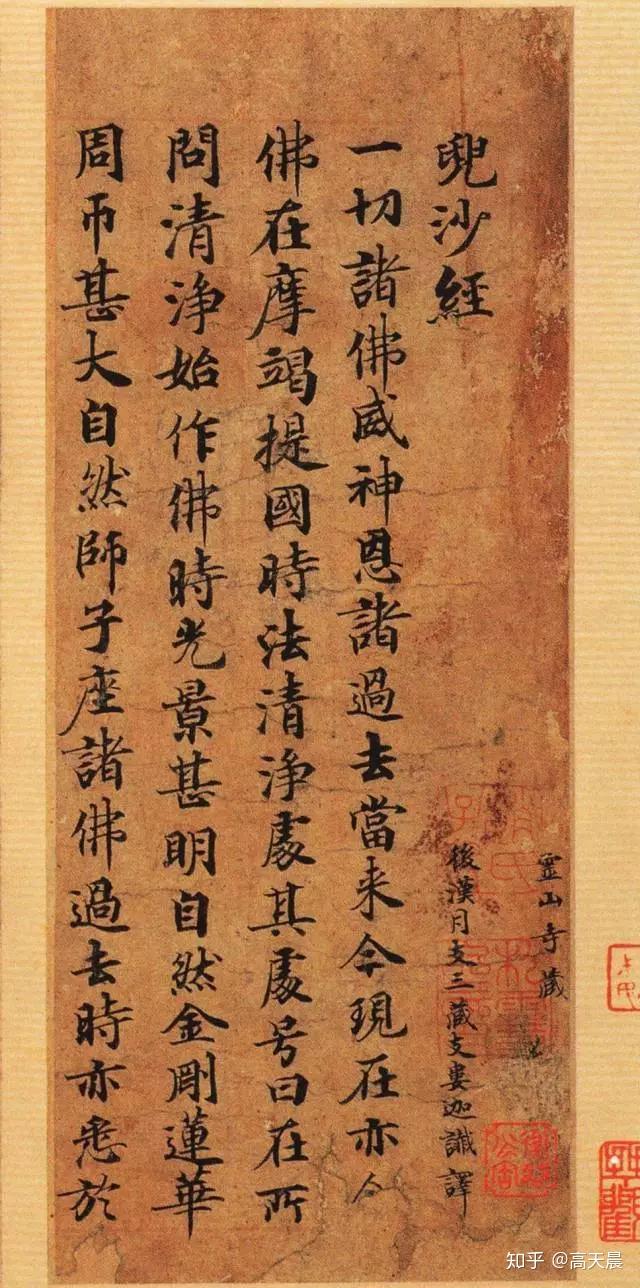 兜沙經
靈山寺藏
後漢月支三藏支婁迦讖譯
一切諸佛威神恩諸過去當来今現在亦介
佛在摩竭提國時法清淨處其處号曰在所
問清淨始作佛時光景甚明自然金剛蓮華
周帀甚大自然師子座諸佛過去時亦悉於
知乎 @高天晨